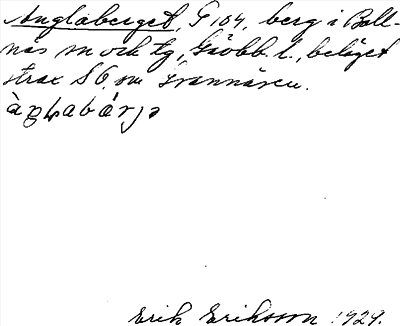 Anglaberget, G 104, berg i Boll-
näs sn och tg, Gäobb. l., beläget
strax SO om Grannäsen.
Erik Eriksson 1929.